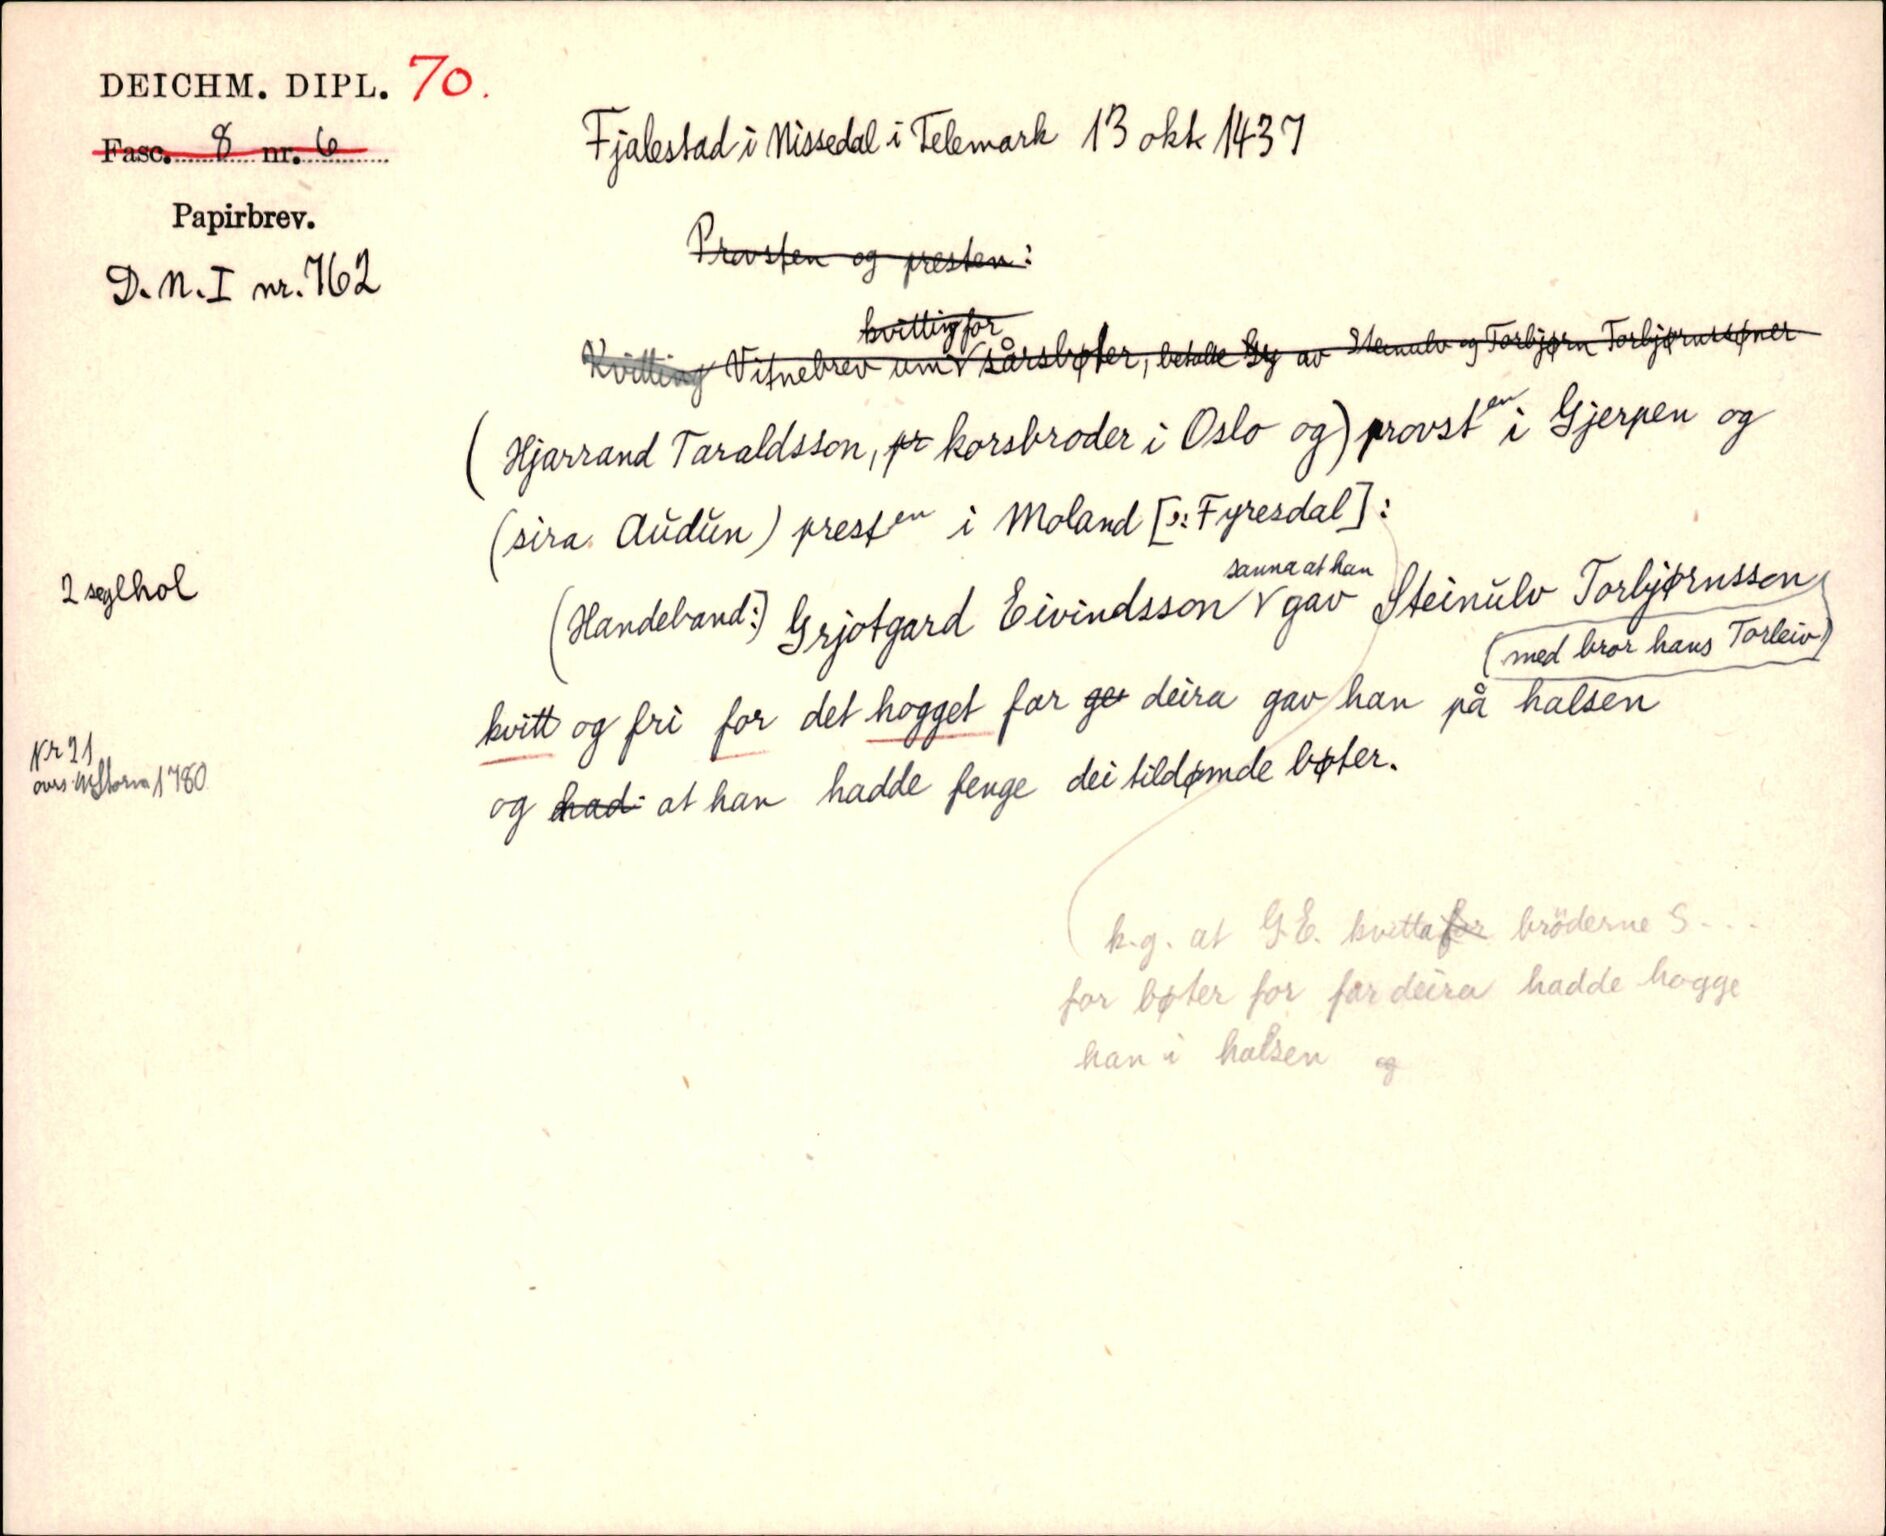 DEICHM. DIPL. 70.
Fasc. 8 nr. 6
Papirbrev.
D.N.I nr. 762
Fjalestad i Nissedal i Telemark 13 okt 1437
Provsten og presten:
kvitting for
Kvitting Vitnebrev um sårsbøter, betalte av Steinulv og Torbjørn Torbjørnssøner
(Hjarrand Taraldsson, pr korsbroder i Oslo og) provsten i Gjerpen og
(sira Audun) presten i Moland [ɔ: Fyresdal]:
2 seglhol
sanna at han
(Handeband:) Grjotgard Eivindsson V gav Steinulv Torbjørnsson
(med bror hans Torleiv)
kvitt og fri for det hogget far ge deira gav han på halsen
og had at han hadde fenge dei tildømde bøter.
Nr 21
avs. M Storm 1780
k.g. at G.E. kvitta for bröderne S...
for bøter for far deira hadde hogge
han i halsen og